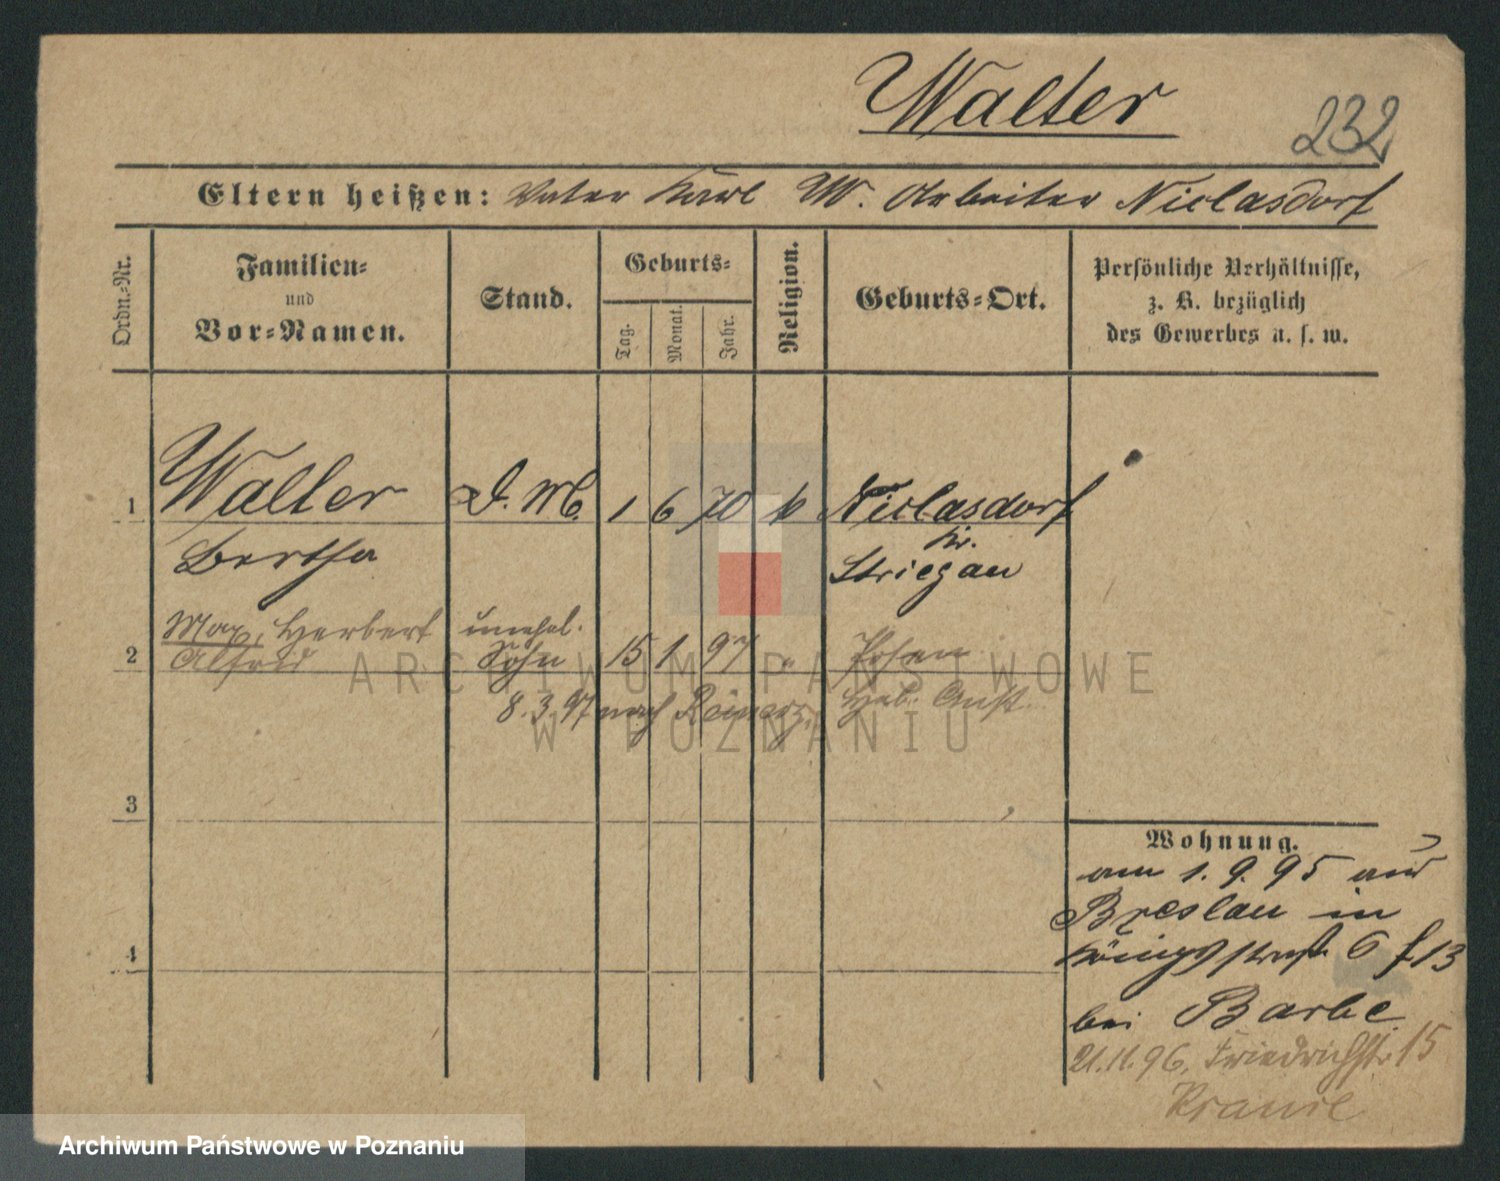 Walter
232
Eltern heißen: Vater Karl W. Arbeiter Niclasdorf
Ordn.-Nr.
Familien- und Vor-Namen.
Stand.
Geburts-
Tag.
Monat.
Jahr.
Religion.
Geburts-Ort.
Persönliche Verhältnisse, z. B. bezüglich des Gewerbes u. s. w.
1 Walter D. M. 1 6 70 k Niclasdorf
Kr.
Bertha Striegau
Max, Herbert unehel.
2 Alfred Sohn 15 1 97 " Posen
8. 3. 97 nach Reinerz. Heb. Anst.
3
Wohnung.
am 1. 9. 95 aus
Breslau in
4 Königsstraße 6 f 13
bei Barbe
21.11.96, Friedrichstr. 15
ARCHIWUM PAŃSTWOWE
W POZNANIU
Archiwum Państwowe w Poznaniu